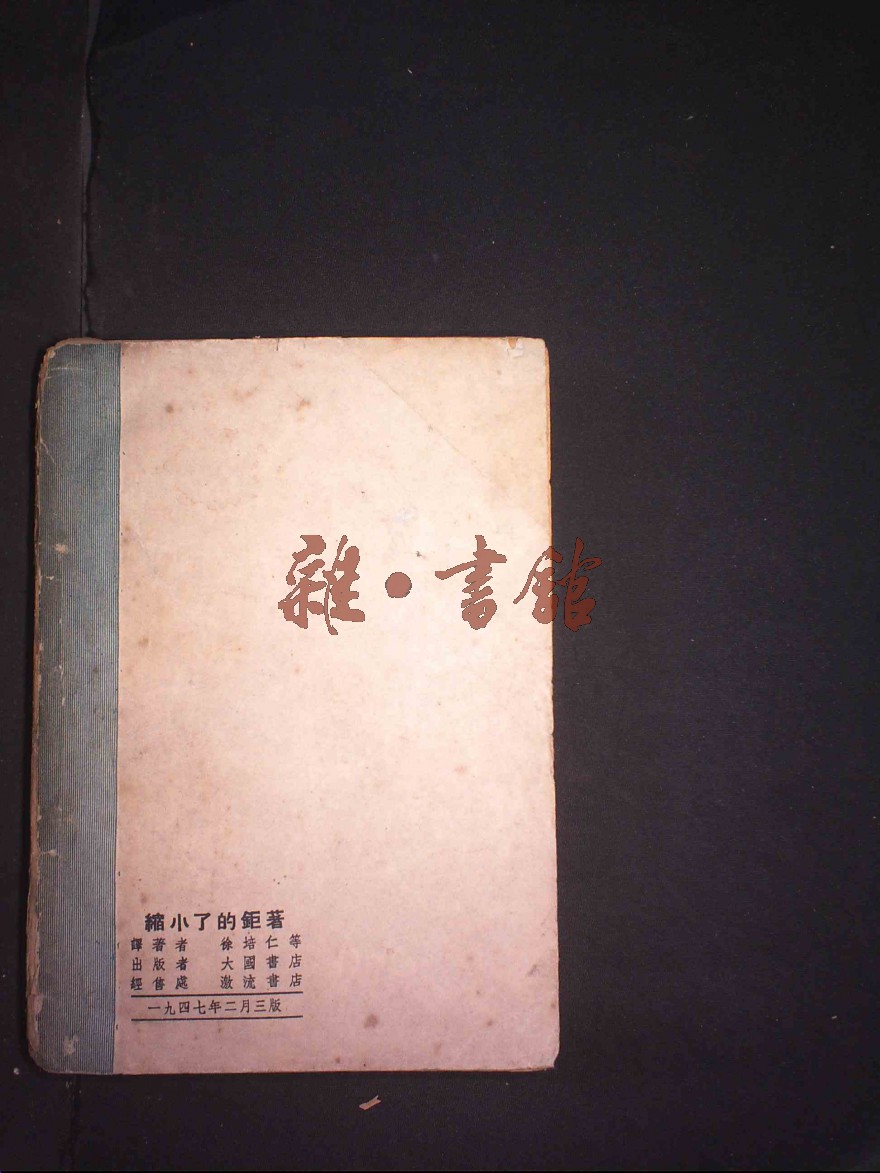 雜·書館
縮小了的鉅著
譯著者 徐培仁等
出版者 大國書店
經售處 激流書店
一九四七年二月三版